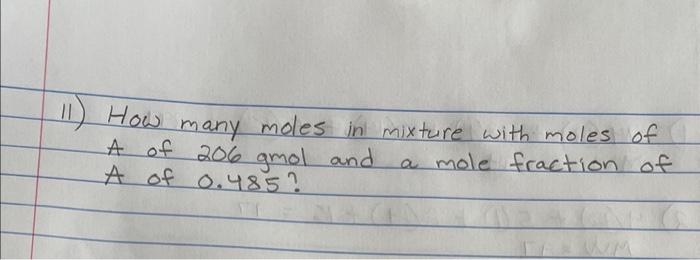 11) How many moles in mixture with moles of
A of 206 gmol and a mole fraction of
A of 0.485?